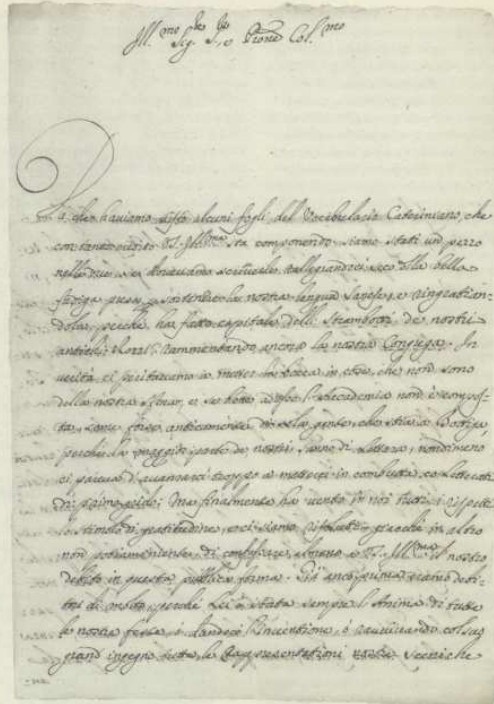 Ill.mo Sig.re S.re e Prone Col.mo
Da che haviamo visto alcuni fogli del Vocabulario Cateriniano, che
con tanto V.S. Ill.ma sta componendo siamo stati un pezzo
nelle due se dovavamo scrivuele, rallegrandoci seco della bella
fadiga presa a sostender la nostra lengua Sanese, e ringratian-
dola, perche ha fatto capitale delli Strambotti de nostri
antichi Rozzi, rammentando ancora la nostra Congrega. In
verità ci peritavamo a metter la bocca in cose, che non sono
della nostra sfera, e se bene adesso l'Accademia non è compos-
ta, come forse anticamente di sola gente, che stava a Bottiga,
perche la maggior parte de nostri sanno di Lettera, nondimeno
ci pareva d'avanzarci troppo a metterci in combutta co Letterati
di primo grido; Ma finalmente ha vento in noi tutti i rispetti
lo stimolo di gratitudine, e ci siamo risoluti, giacche in altro
non potiamo di confessare almeno a V.S. Ill.ma il nostro
debito in questa publica forma. Già anco prima eramo debi-
tori di molto, perche Lei è stata sempre l'Anima di tutte
le nostre feste, o dandoci l'inventione, ò ravvivando col suo
grand ingegno tutte le Rappresentationi nostre Sceniche